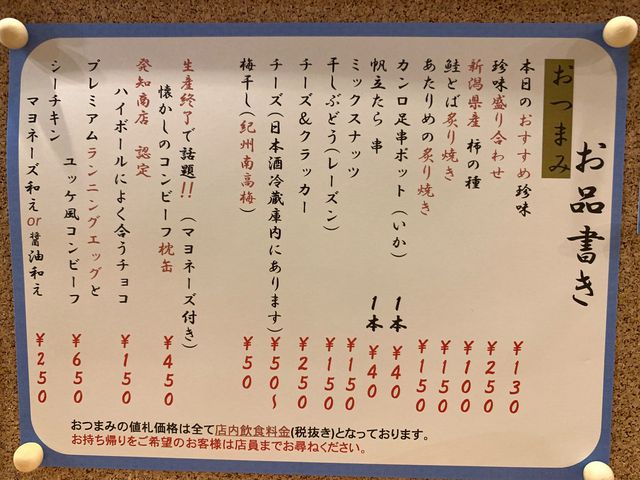 お品書き
おつまみ
本日のおすすめ珍味 ¥130
珍味盛り合わせ ¥250
新潟県産 柿の種 ¥100
鮭とば炙り焼き ¥150
あたりめの炙り焼き ¥150
カンロ足串ポット(いか) 1本 ¥40
帆立たら 串 1本 ¥40
ミックスナッツ ¥150
干しぶどう(レーズン) ¥150
チーズ&クラッカー ¥250
チーズ(日本酒冷蔵庫内にあります) ¥50~
梅干し(紀州南高梅) ¥50
生産終了で話題!!(マヨネーズ付き)
懐かしのコンビーフ枕缶 ¥450
発知商店 認定
ハイボールによく合うチョコ ¥150
プレミアムランニングエッグと
ユッケ風コンビーフ ¥650
シーチキン
マヨネーズ和えor醤油和え ¥250
おつまみの値札価格は全て店内飲食料金(税抜き)となっております。
お持ち帰りをご希望のお客様は店員までお尋ねください。